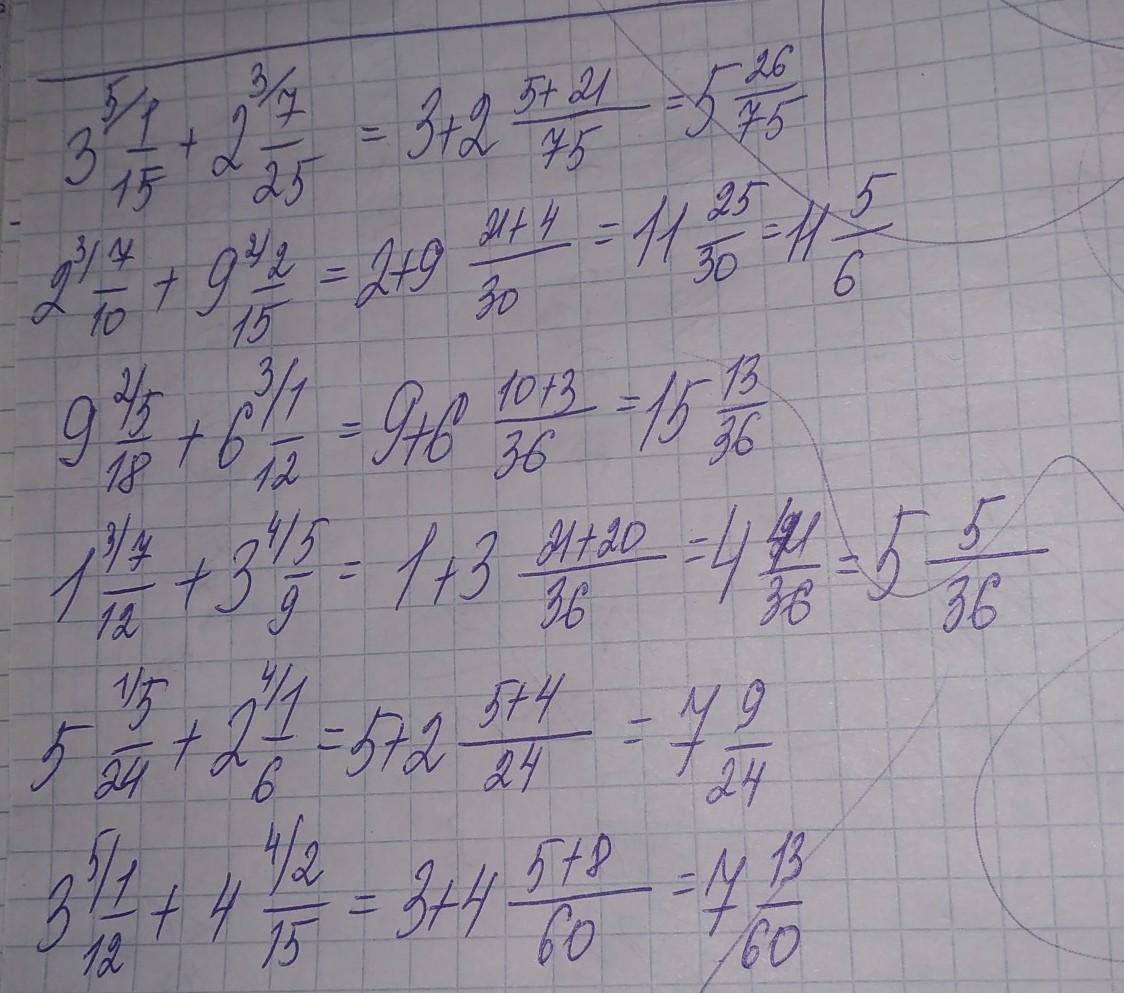 3 5/1/15 + 2 3/7/25 = 3+2 5+21/75 = 5 26/75
2 3/7/10 + 9 2/2/15 = 2+9 21+4/30 = 11 25/30 = 11 5/6
9 2/5/18 + 6 3/1/12 = 9+6 10+3/36 = 15 13/36
1 3/7/12 + 3 4/5/9 = 1+3 21+20/36 = 4 41/36 = 5 5/36
5 1/5/24 + 2 4/1/6 = 5+2 5+4/24 = 7 9/24
3 5/1/12 + 4 4/2/15 = 3+4 5+8/60 = 7 13/60